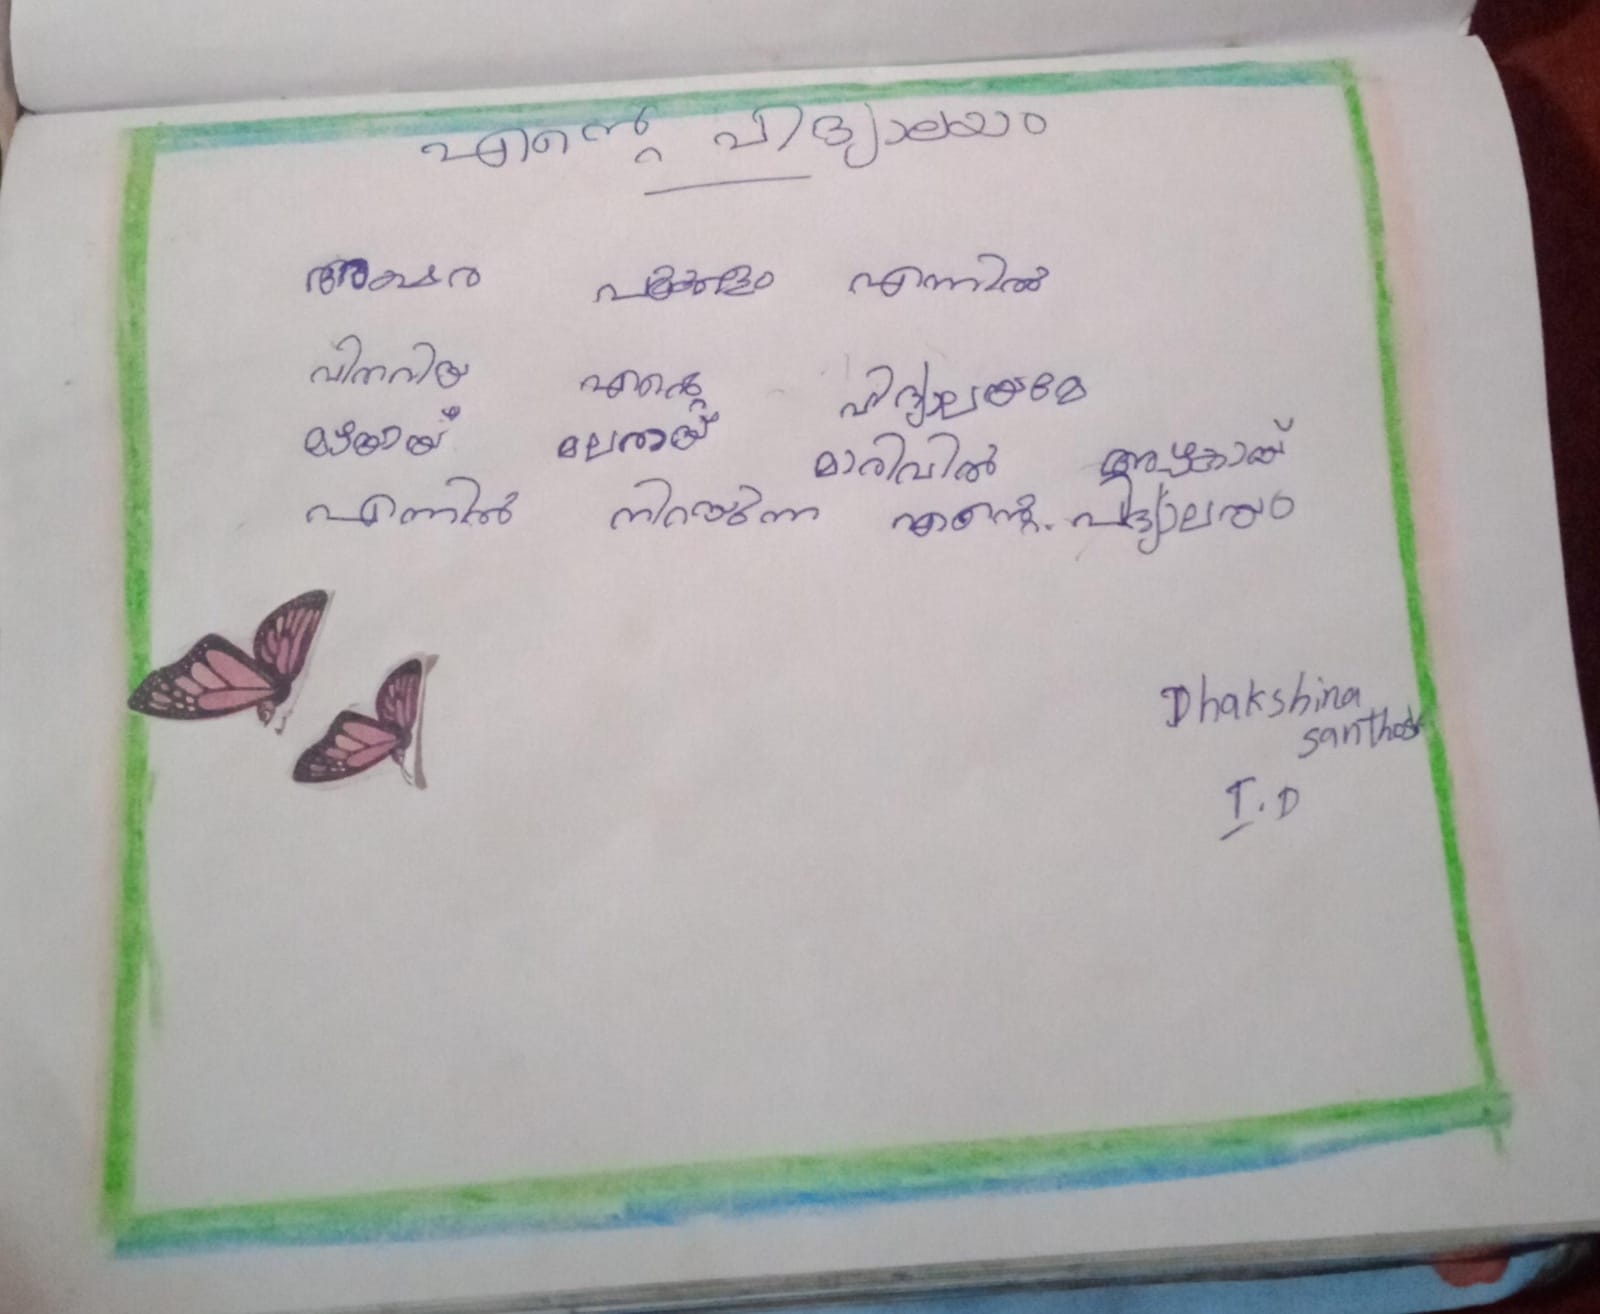 എന്റെ വിദ്യാലയം
അക്ഷര എന്നിൽ
വിതറിയ എന്റെ വിദ്യാലയമേ
മഴയായ് മലരായ് മാരിവിൽ അഴകായ്
എന്നിൽ നിറയുന്ന എന്റെ. വിദ്യാലയം
Dhakshina
santhosh
I.D